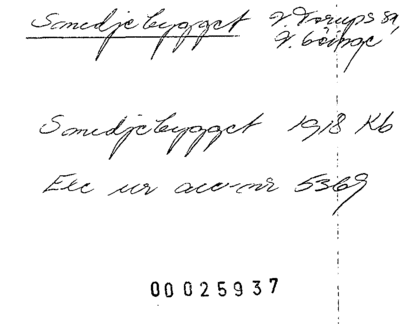 Smedjebygget V. Torups sn,
V. Göinge
Smedjebygget 1918 Kb
Exc ur acc-nr 5369
00025937